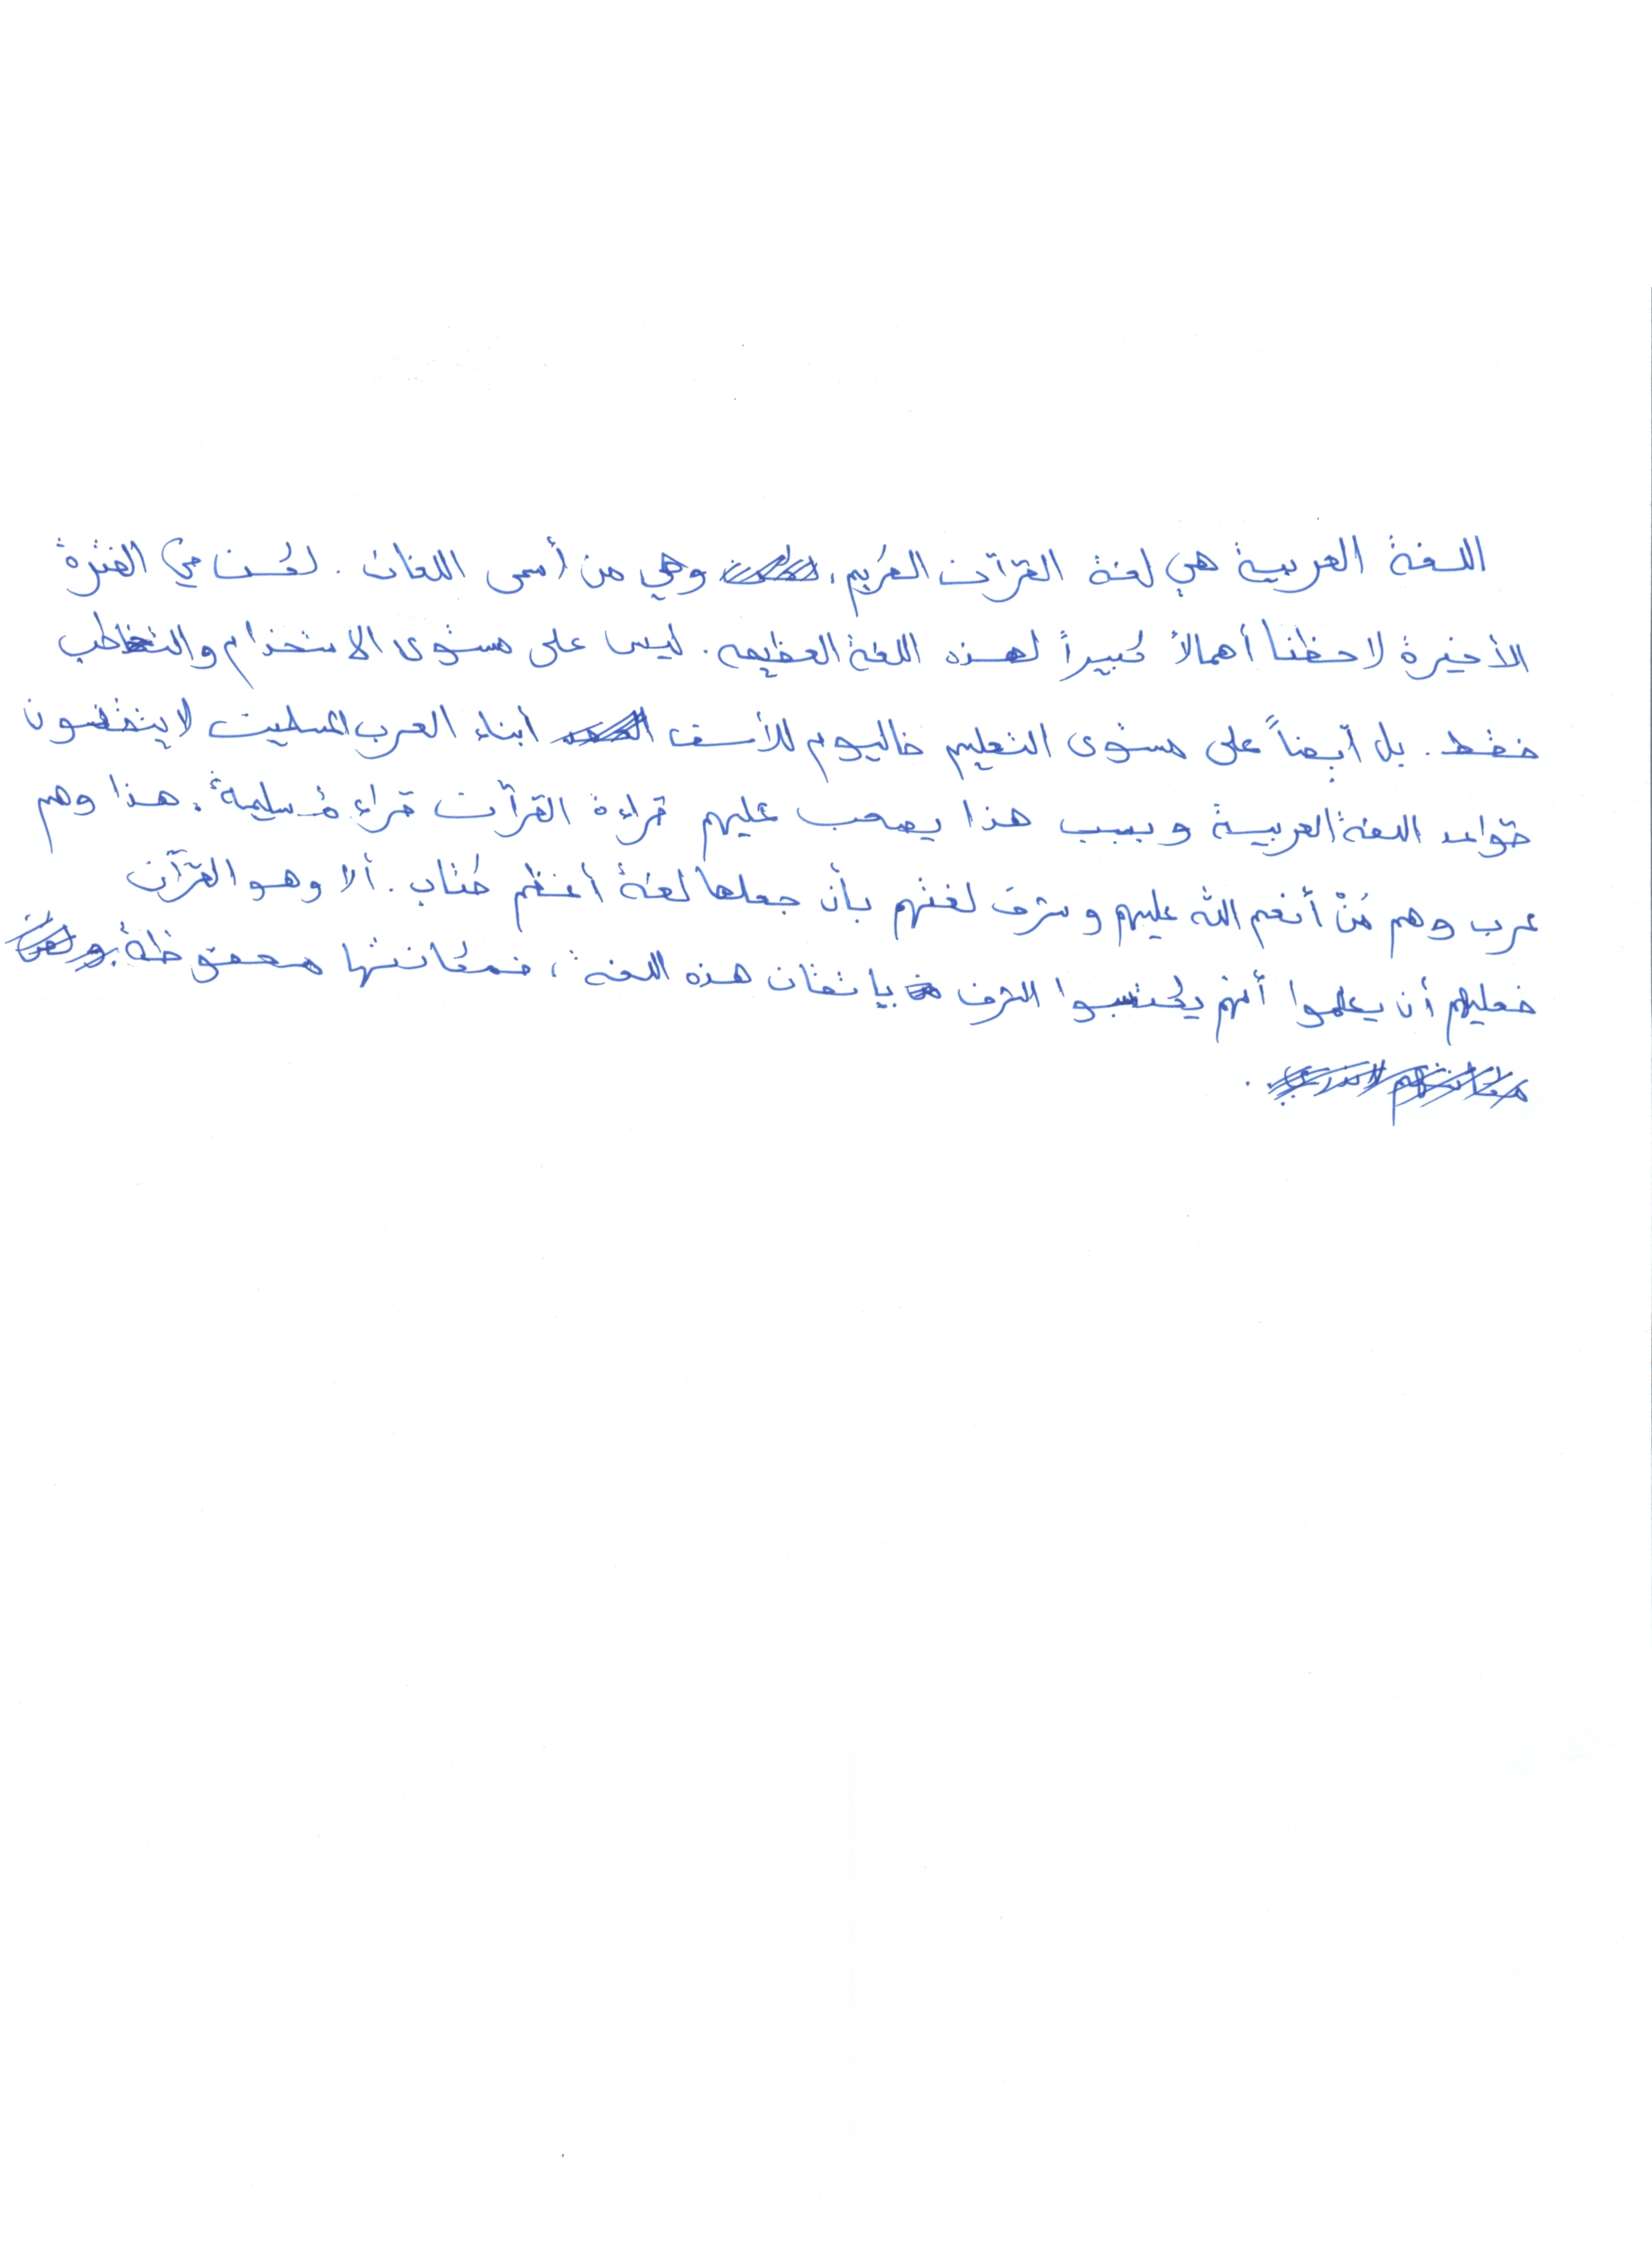 اللغة العربية هي لغة القرآن الكريم، وهي من أسمى اللغات. لكن في الفترة
الأخيرة لاحظنا أهمالاً كبيراً لهذه اللغة العظيمه. ليس على مستوى الاستخدام والتخاطب
فقط. بل أيضاً على مستوى التعليم فاليوم للأسف أبناء العرب المسلمين لا يتقنون
قواعد اللغة العربية وبسبب هذا يصعب عليهم قراءة القرآن قراءة سليمة. هذا وهم
عرب وهم مَنْ أنعم الله عليهم وشرف لغتهم بأن جعلها لغة أعظم كتاب. ألا وهو القرآن
فعليهم أن يعلموا أنهم يكتسبوا الشرف بإتقان هذه اللغة، فمكانتها محفوظة